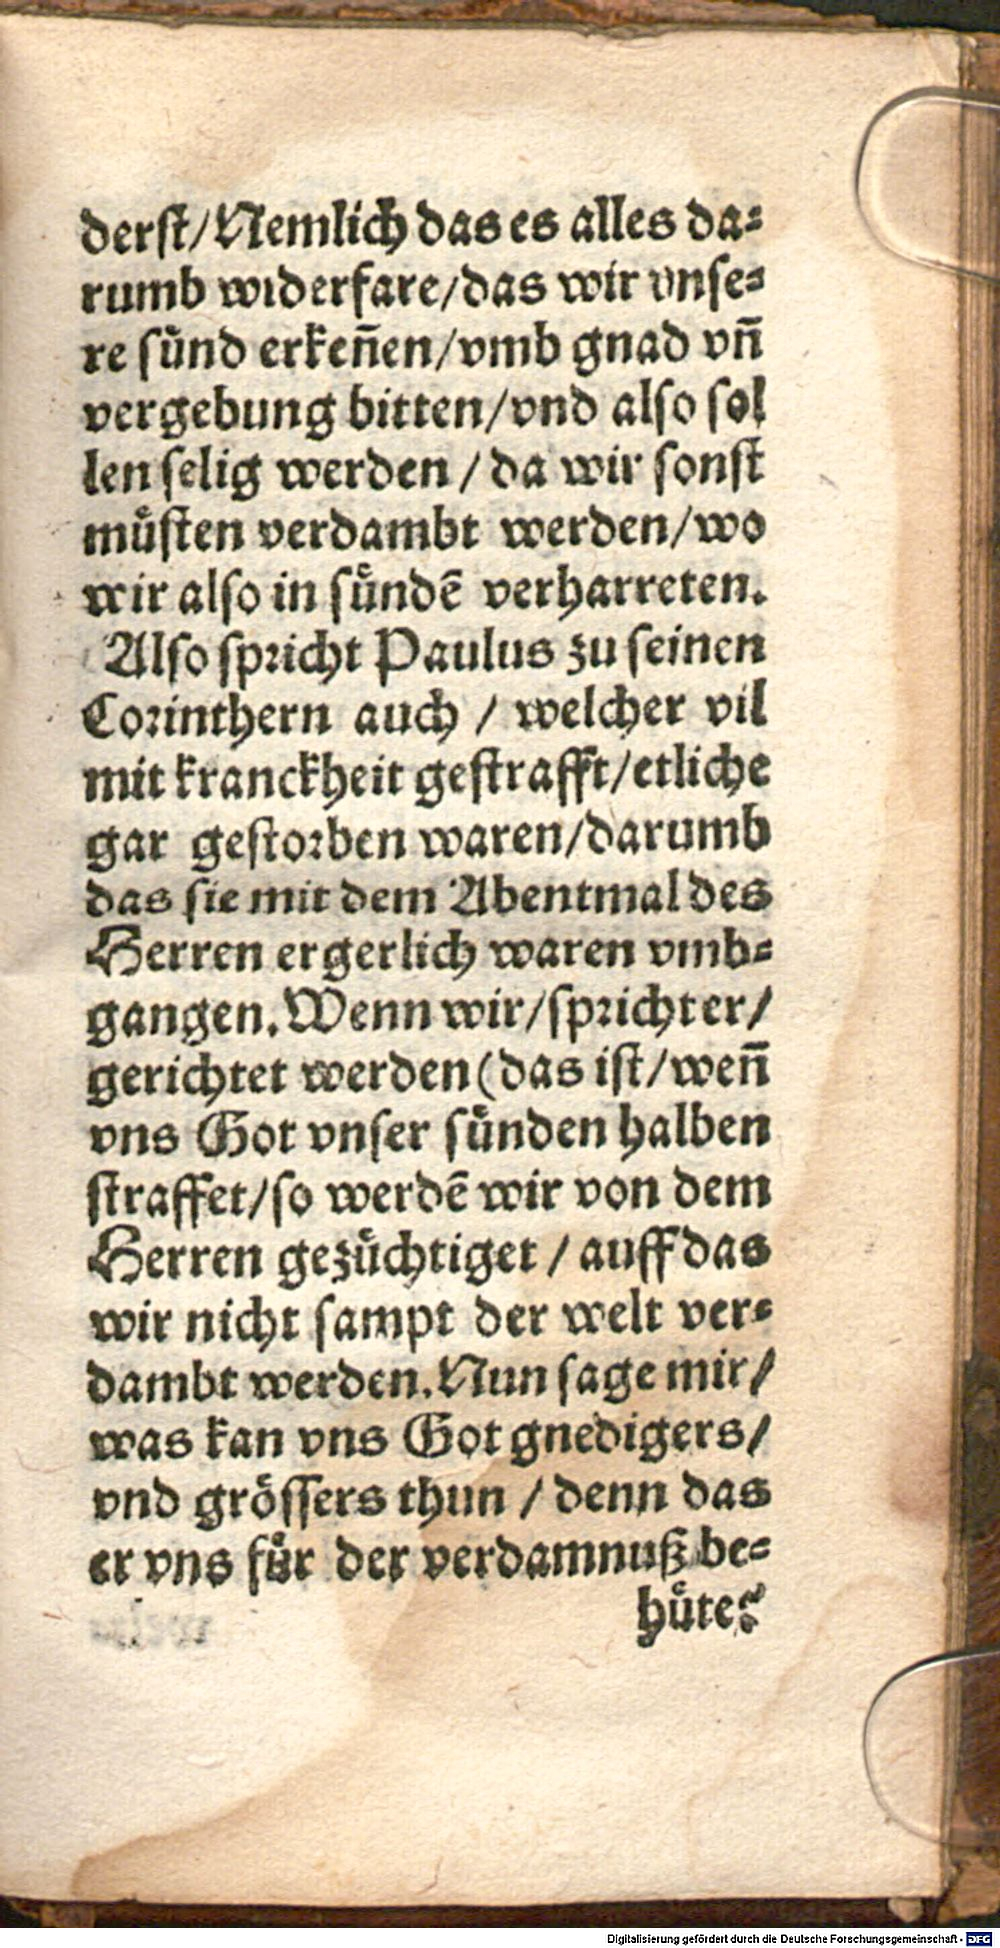 derſt/Nemlich das es alles da⸗
rumb widerfare/das wir vnſe⸗
re ſuͤnd erkeñen/vmb gnad vñ
vergebung bitten/vnd alſo ſol
len ſelig werden / da wir ſonſt
muͤſten verdambt werden/wo
wir alſo in ſuͤndē verharreten.
Alſo ſpꝛicht Paulus zu ſeinen
Coꝛinthern auch / welcher vil
mit kranckheit geſtrafft/etliche
gar geſtoꝛben waren/darumb
das ſie mit dem Abentmal des
Herren ergerlich waren vmb⸗
gangen. Wenn wir/ſpꝛicht er/
gerichtet werden(das iſt/weñ
vns Got vnſer ſuͤnden halben
ſtraffet/ſo werdē wir von dem
Herren gezuͤchtiget / auff das
wir nicht ſampt der welt ver⸗
dambt werden. Nun ſage mir/
was kan vns Got gnedigers/
vnd groͤſſers thun / denn das
er vns fuͤr der verdamnuß be⸗
huͤte?
Digitalisierung gefördert durch die Deutsche Forschungsgemeinschaft - DFG